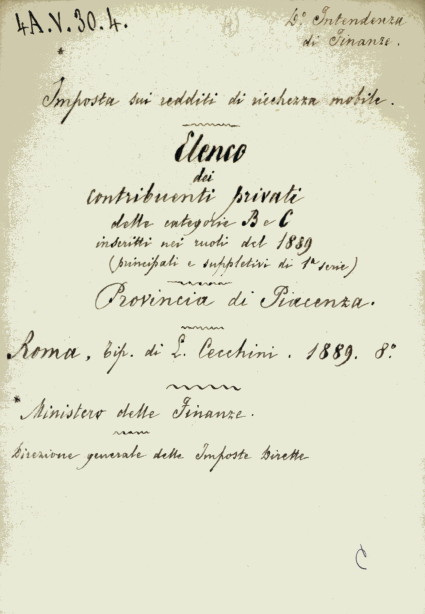 4A.V.30.4.
Da Intendenza
di Finanze.
Imposta sui redditi di ricchezza mobile.
Elenco
dei
contribuenti privati
delle categorie B e C
inscritti nei ruoli del 1889
(principali e suppletivi di 1a serie)
Provincia di Piacenza.
Roma, Tip. di L. Cecchini. 1889. 8o
* Ministero delle Finanze.
Direzione generale delle Imposte Dirette
C